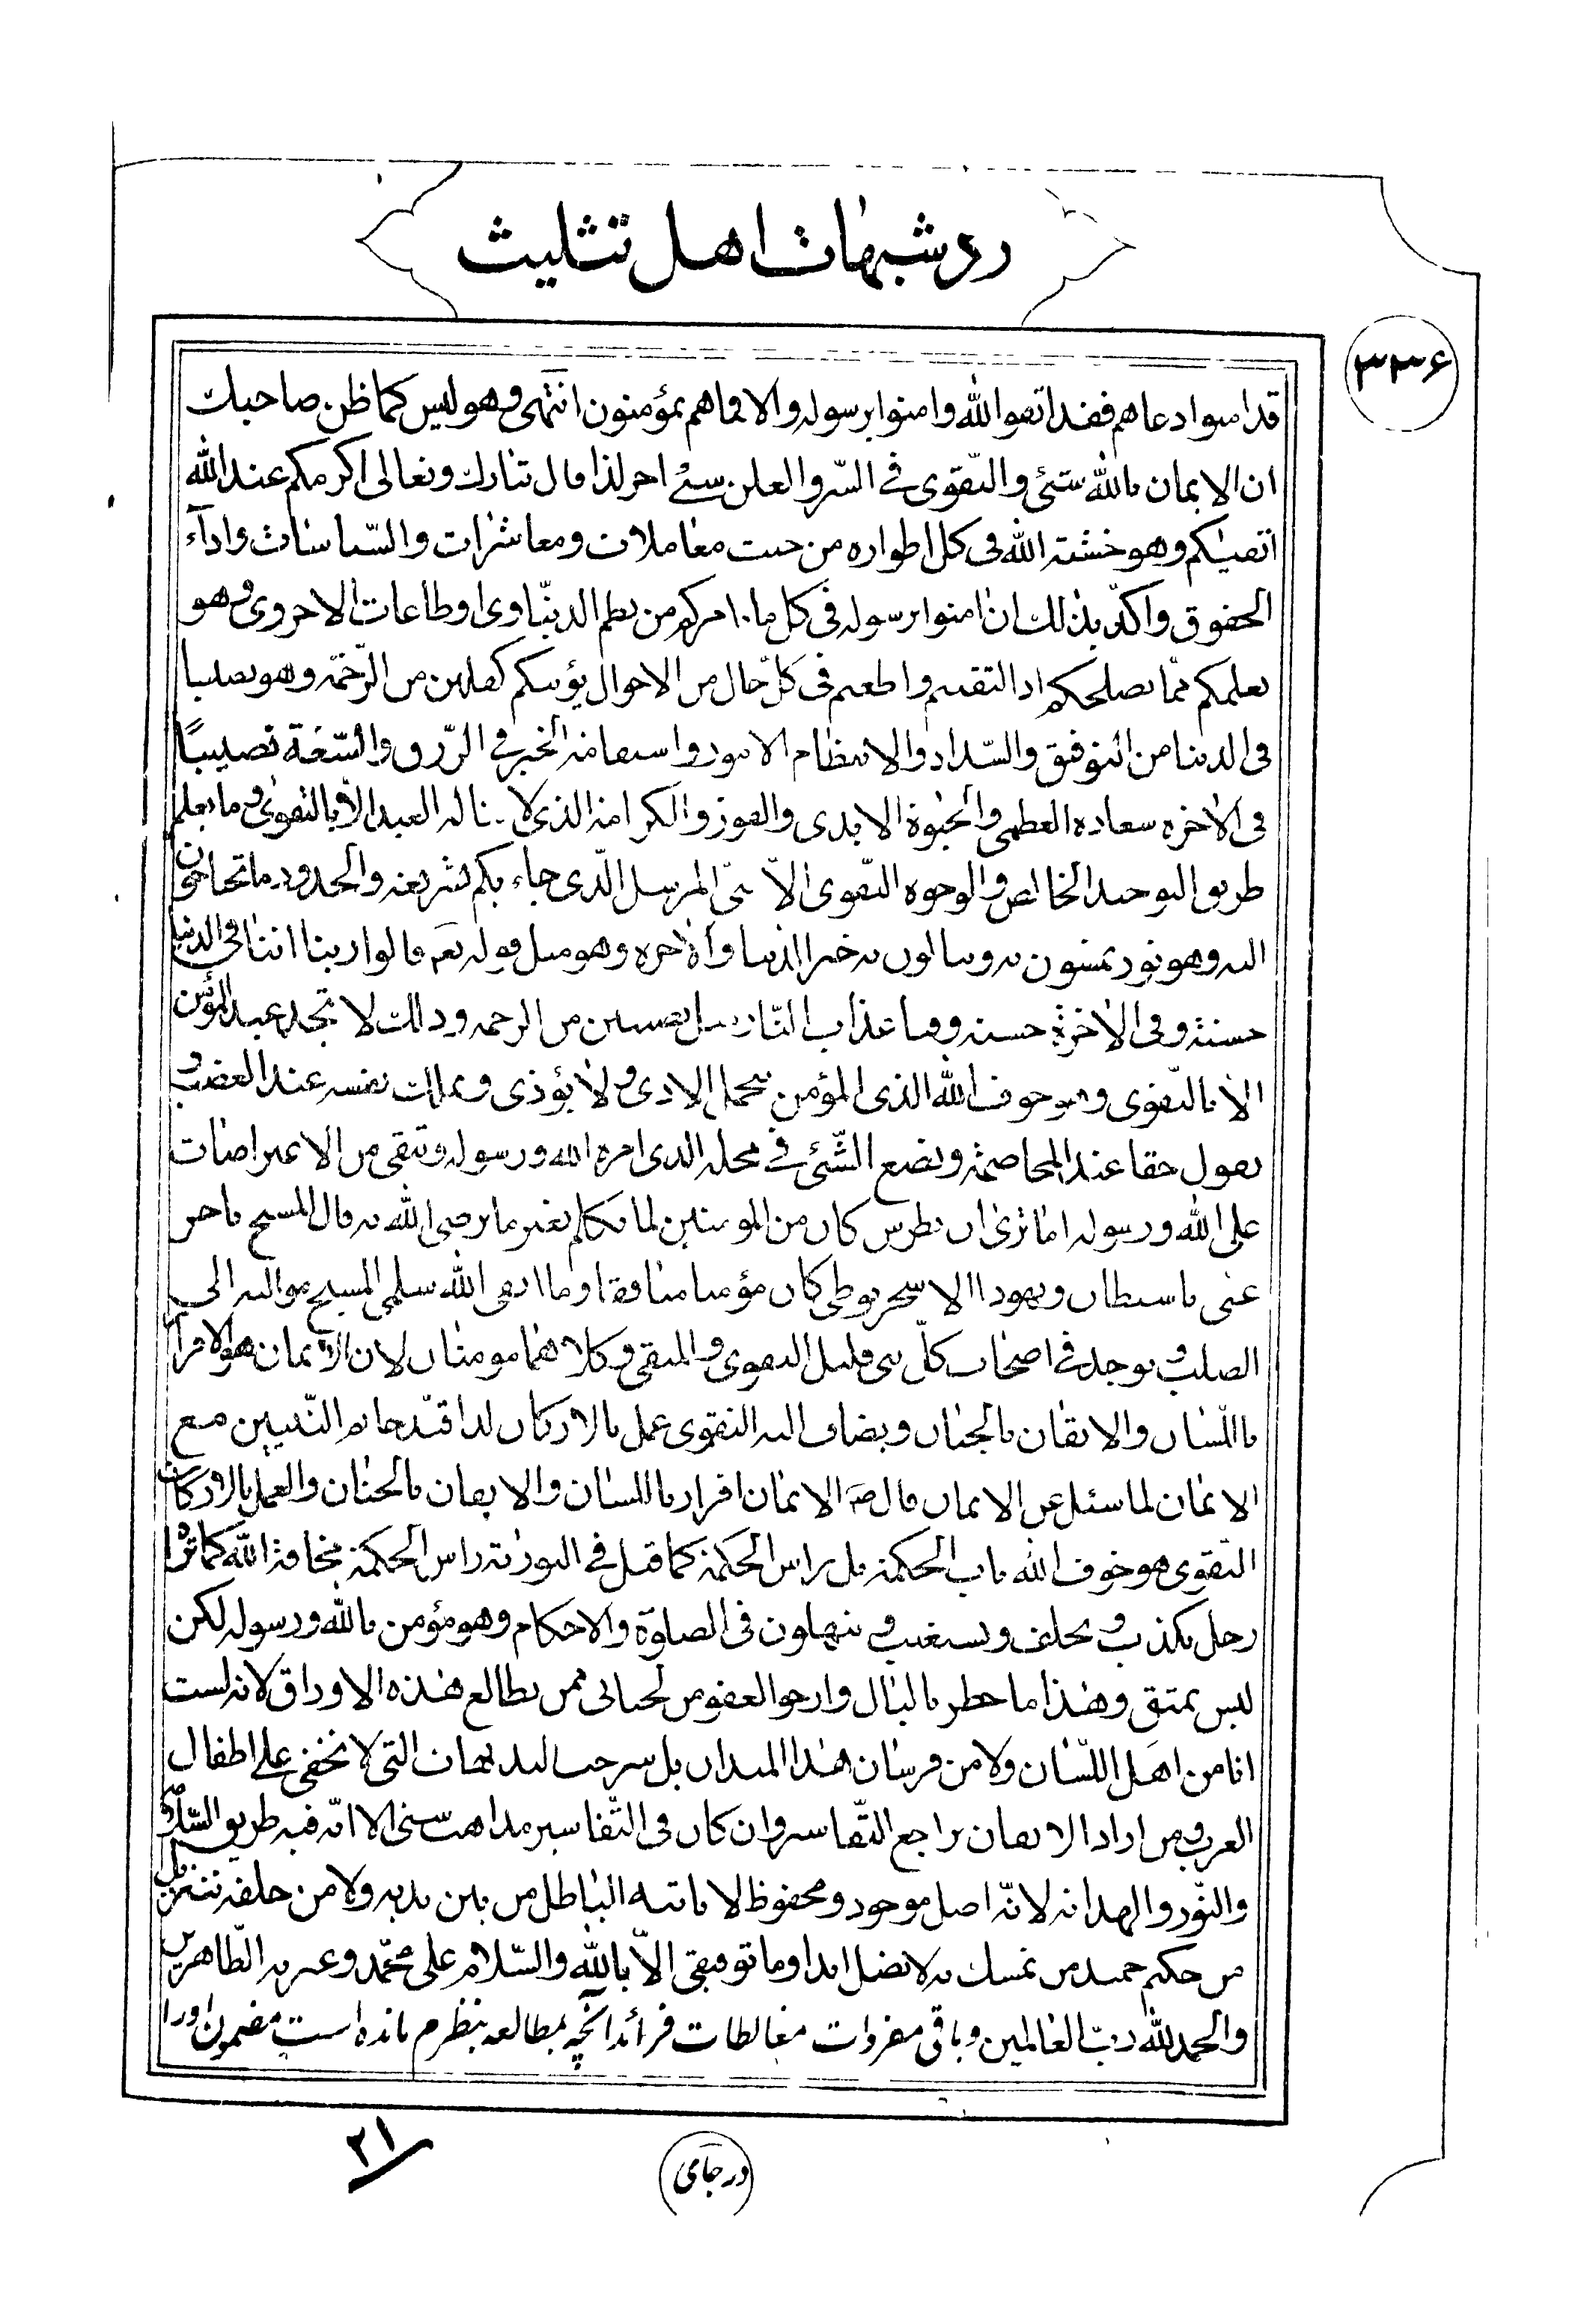 رد شبهات اهل تثلیث
۳۳۶
قد امنوا دعاهم فقد اتقوا الله وامنوا برسوله والا فما هم بمؤمنون انتهی و هو لیس کما ظن صاحبک
ان الایمان بالله شئی والتقوی فی السر والعلن شئ اخر لذا قال تبارک وتعالی اکرمکم عند الله
اتقیکم وهو خشته الله فی کل اطواره من حیث معاملات ومعاشرات والسیاسات واداء
الحقوق واکد بذلک ان امنوا برسوله فی کل ما امرکم من نظم الدنیاوی او طاعات الاخروی و هو
یعلمکم مما یصلحکم اذا اتقیتم واطعتم فی کل حال من الاحوال یؤتیکم کفلین من الرحمة وهو نصیبا
فی الدنیا من التوفیق والسداد والانتظام الامور واستقامة الخیر فی الرزق والسعة نصیبا
فی الاخره سعاده العظمی والحیوة الابدی والفوز والکرامة الذی لا یناله العبد الا بالتقوی و ما یعلم
طریق التوحید الخالص والوجوه التقوی الا نبی المرسل الذی جاء بکم بشریعة والحدود ما تحتاجون
الیه وهو نور تمشون به وتنالون به خیر الدنیا والاخره وهو مثل قوله تع قالوا ربنا اتنا فی الدنیا
حسنة وفی الاخرة حسنة وقنا عذاب النار مثل نصیبین من الرحمه وذالک لا تجد عبد المؤمن
الا بالتقوی وهو خوف الله الذی المؤمن یتحمل الاذی و لا یؤذی و یملک نفسه عند الغضب و
یقول حقا عند المخاصمة ویضع الشئ فی محله الذی امره الله ورسوله ویتقی من الاعتراضات
علی الله ورسوله اما تری ان بطرس کان من المومنین لما تکلم بغیر ما یرضی الله به قال المسیح تاخر
عنی یا شیطان ویهودا الاسخریوطی کان مؤمنا منافقا وما اتقی الله سلم المسیح موالیه الی
الصلب و یوجد فی اصحاب کل نبی قلیل التقوی و المتقی و کلاهما مومنان لان الایمان هو الاقرار
باللسان والایقان بالجنان ویضاف الیه التقوی عمل بالارکان لذا قید خاتم النبیین مع
الایمان لما سئل عن الایمان قال ص الایمان اقرار باللسان والایقان بالجنان والعمل بالارکان و
التقوی هو خوف الله باب الحکمة بل راس الحکمة کما قیل فی التوریة راس الحکمة مخافة الله کما تراه
رجل یکذب و یحلف ویستغیب و یتهاون فی الصلوة والاحکام وهو مؤمن بالله ورسوله لکن
لیس بمتق وهذا ما خطر بالبال وارجو العفو من لحنالی ممن یطالع هذه الاوراق لانه لست
انا من اهل اللسان ولا من فرسان هذا المیدان بل شرحت البدیهات التی لا تخفی علی اطفال
العرب و من اراد الایقان یراجع التفاسیر وان کان فی التفاسیر مذاهب شتی الا انه فیه طریق السداد و
والنور والهدایة لانه اصل موجود ومحفوظ لا یاتیه الباطل من بین یدیه ولا من خلفه تنزیل
من حکیم حمید من تمسک به لا یضل ابدا وما توفیقی الا بالله والسلام علی محمد وعترته الطاهرین
والحمد لله رب العالمین وباقی مفردات مغالطات فرائد انچه بمطالعه بنظرم مانده است مضمون اورا
در جائی
۲۱